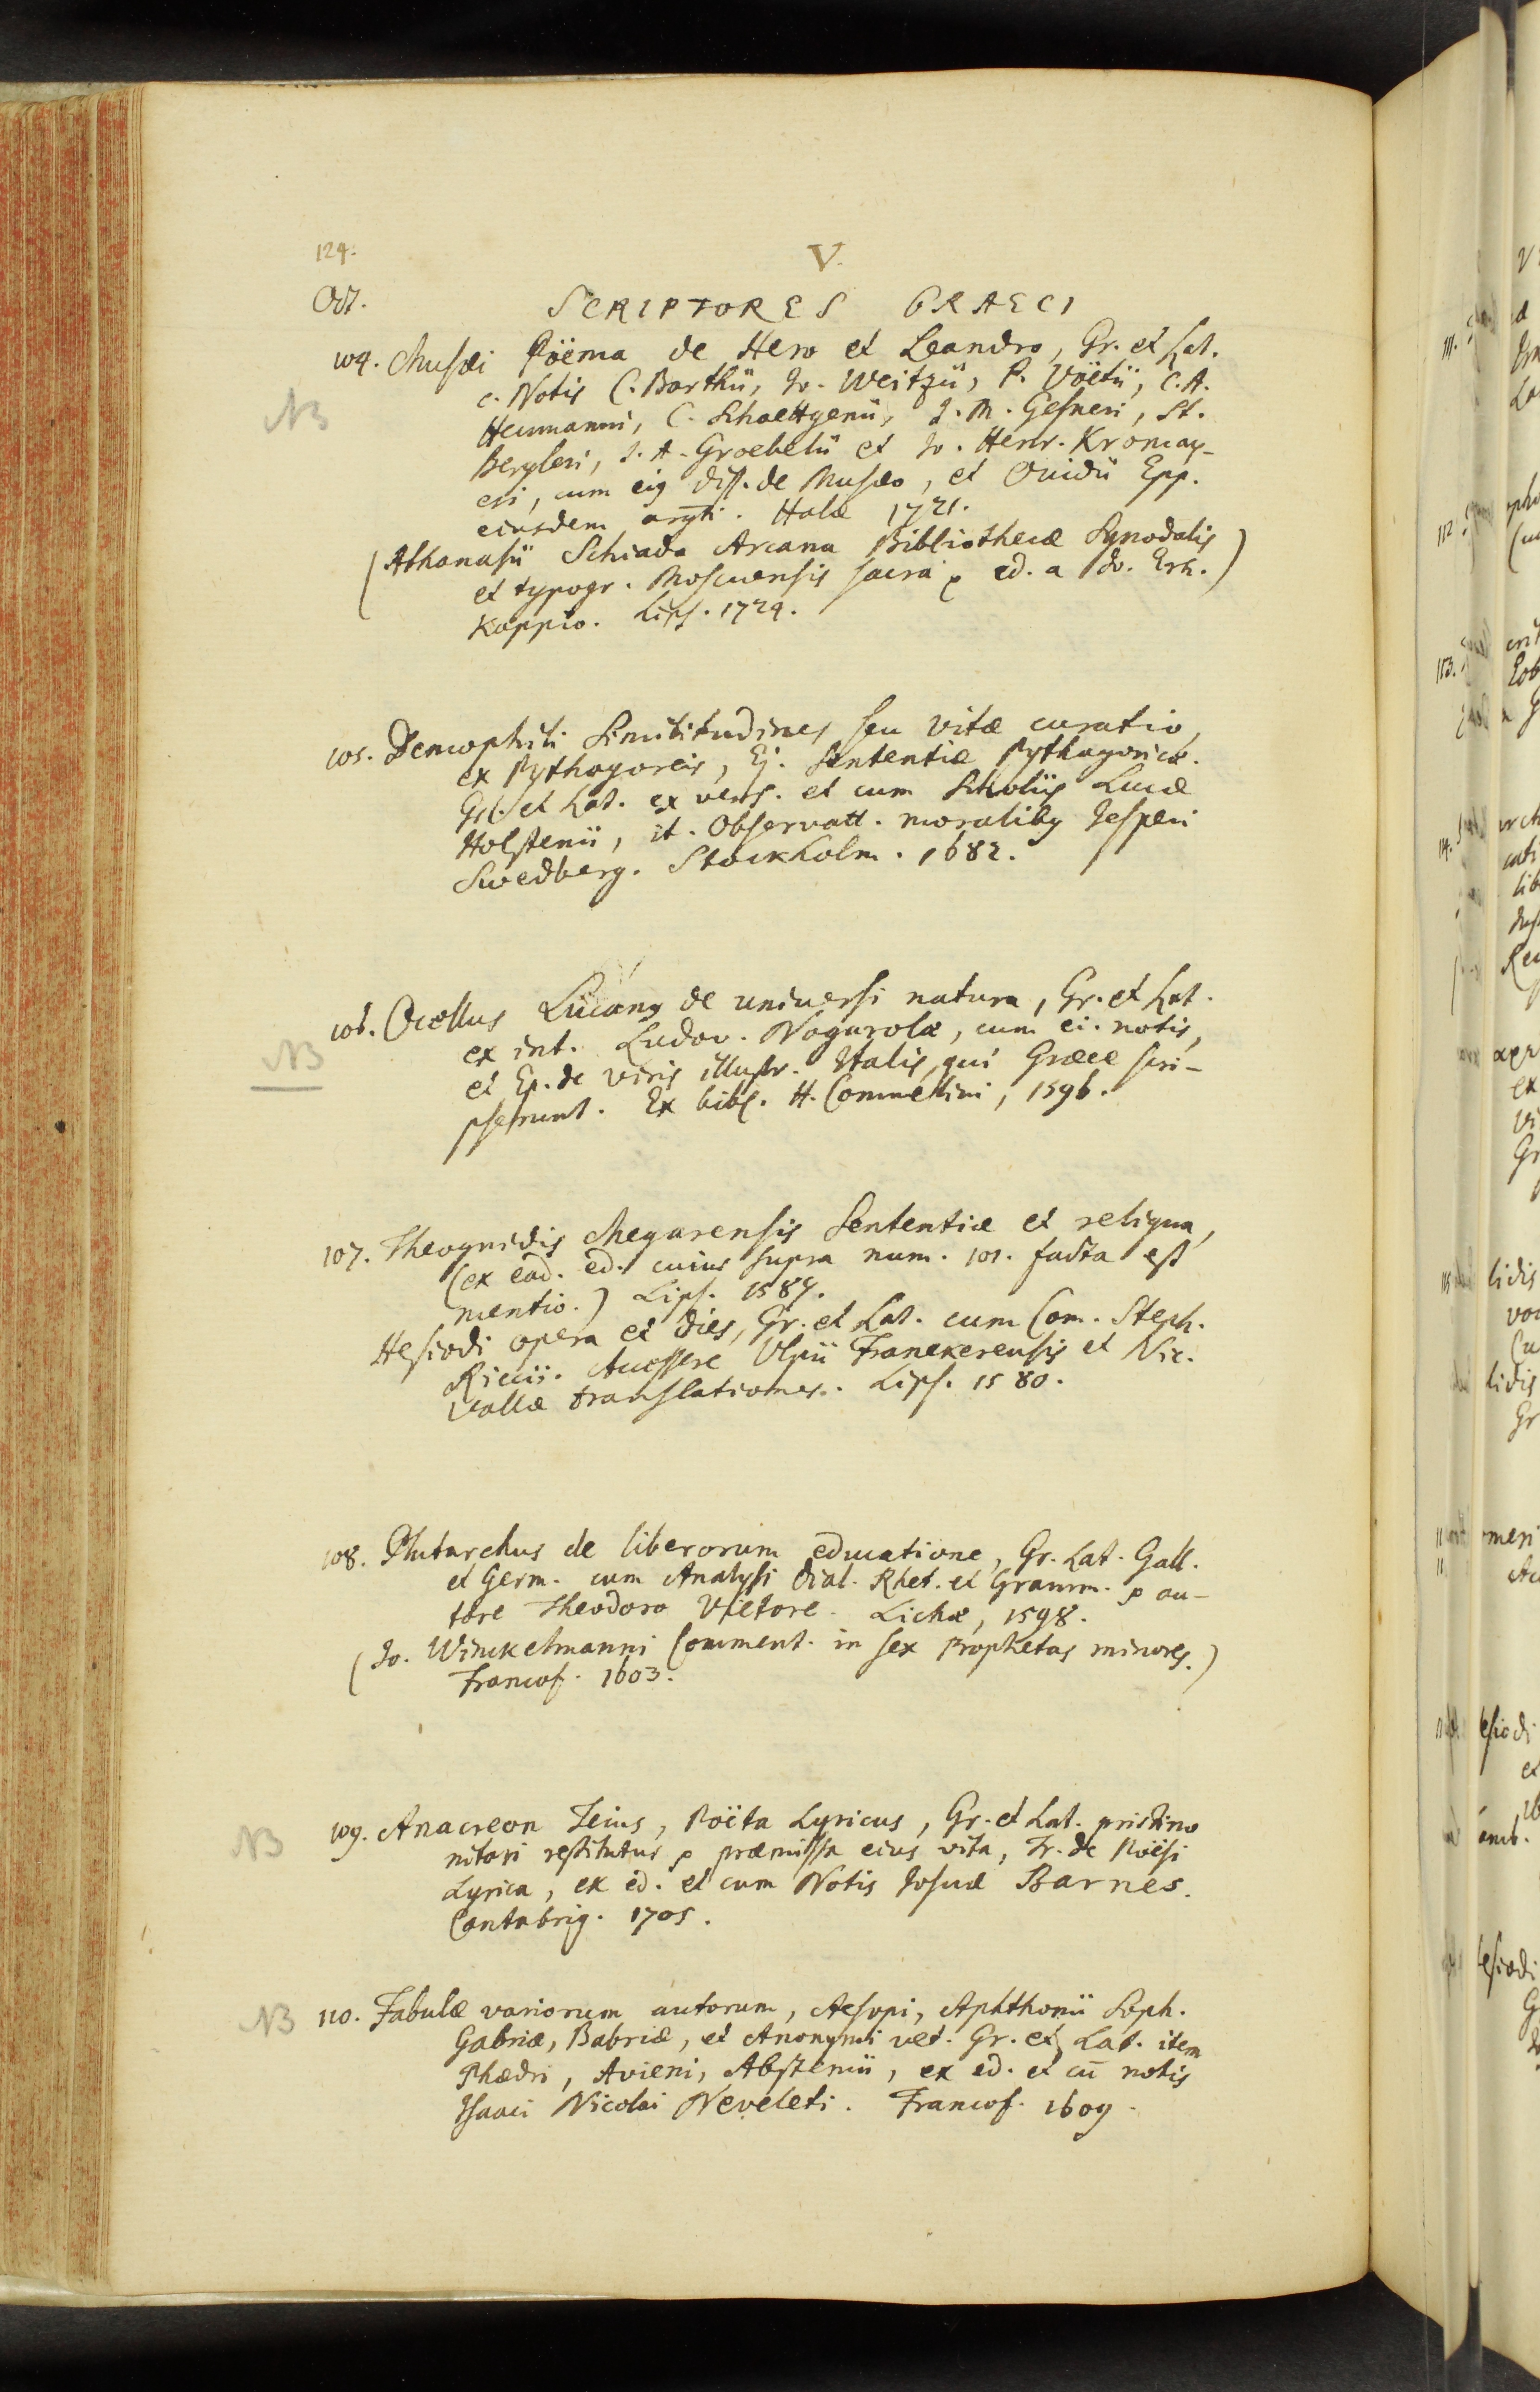 124.
V.
Oct.
SCRIPTORES GRAECI
104. Musæi Poëma de Hero et Leandro, Gr. et Lat.
NB
c. Notis C. Barthii, Jo. Weitzii, P. Voëtii, C. A.
Heumanni, C. Schoettgenii, J. M. Gesneri, St.
Bergleri, J. A. Groebelii et Jo. Henr. Kromay-
eri, cum eig diss. de Musæo, et Ovidii Epp.
eiusdem argti. Halæ 1721.
(Athanasii Schiada Arcana Bibliothecæ Synodalis
et typogr. Moscuensis sacra ed. a Jo. Erh.)
Kappio. Lips. 1724.
105. Demophili Similitudines seu vitæ curatio,
ex Pythagoreis, Ej. Sententiæ Pythagoricæ.
Gr. et Lat. ex vers. et cum Scholiis Lucæ
Holstenii, it. Observatt. moralibg Jesperi
Swedberg. Stockholm. 1682.
106. Ocellus Lucang de universi natura, Gr. et Lat.
NB
ex int. Ludov. Nogarolæ, cum ei. notis,
et Ep. de viris illustr. Italis, qui Græce scri-
pserunt. Ex bibl. H. Commelini, 1596.
107. Theognidis Megarensis Sententiæ et reliqua,
(ex ead. ed. cuius supra num. 101. facta est
mentio.) Lips. 1587.
Hesiodi opera et dies, Gr. et Lat. cum Com. Steph.
Riccii. Accessere Ulpii Franekerensis et Nic.
Vallæ translationes. Lips. 1580.
108. Plutarchus de liberorum educatione, Gr. Lat. Gall.
et Germ. cum Analysi Dial. Rhet. et Gramm. au-
tore Theodoro Vietore. Lichæ, 1598.
(Jo. Winckelmanni Comment. in sex Prophetas minores.)
Francof. 1603.
NB
109. Anacreon Teius, Poëta Lyricus, Gr. et Lat. pristino
nitori restitutus præmissa eius vita, Tr. de Poësi
Lyrica, ex ed. et cum Notis Josuæ Barnes.
Cantabrig. 1705.
NB
110. Fabulæ variorum autorum, Aesopi, Aphthonii Soph.
Gabriæ, Babriæ, et Anonymi vet. Gr. et Lat. item
Phædri, Avieni, Abstemii, ex ed. et cū notis
Isaaci Nicolai Neveleti. Francof. 1609.